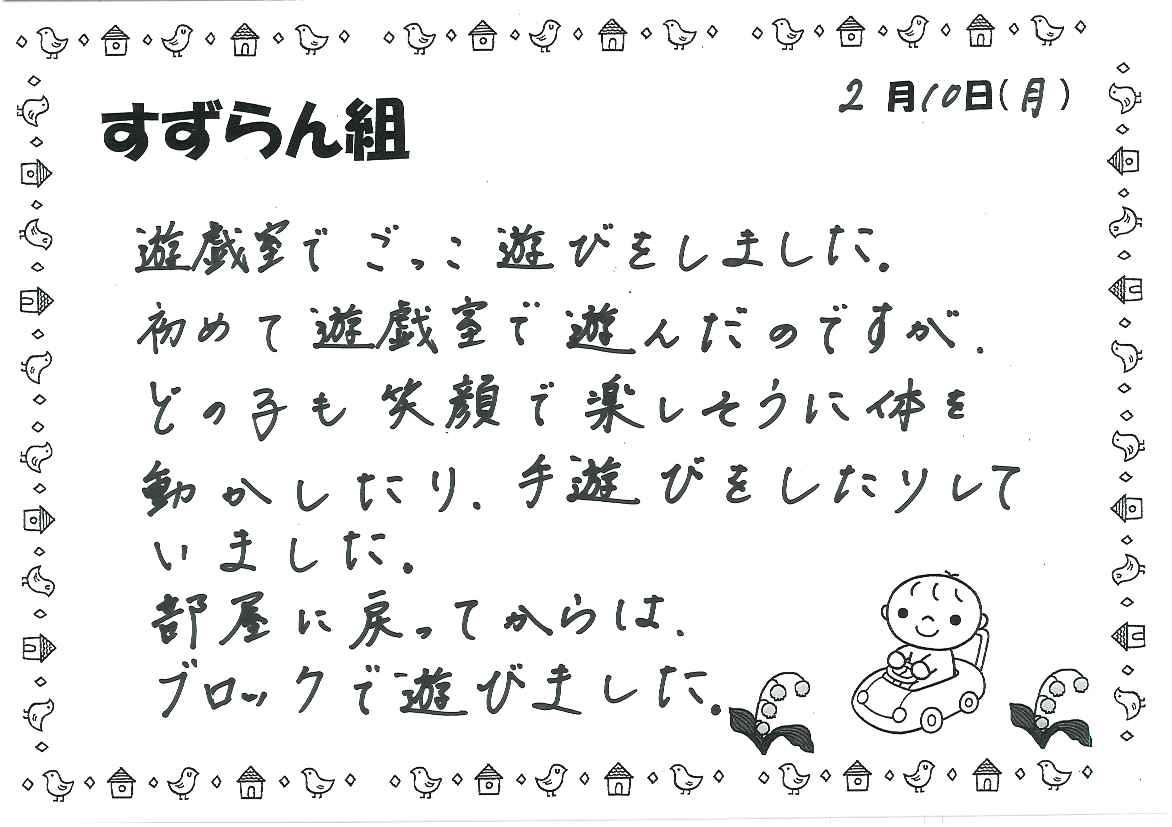 2月10日(月)
すずらん組
遊戯室でごっこ遊びをしました。
初めて遊戯室で遊んだのですが、
どの子も笑顔で楽しそうに体を
動かしたり、手遊びをしたりして
いました。
部屋に戻ってからは、
ブロックで遊びました。